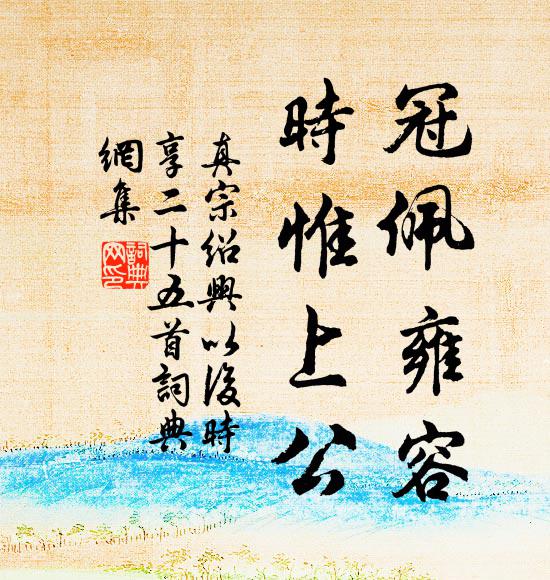 冠佩雍容
時惟上公
真宗紹興以後時
享二十五首詞典
網集
詞典网印